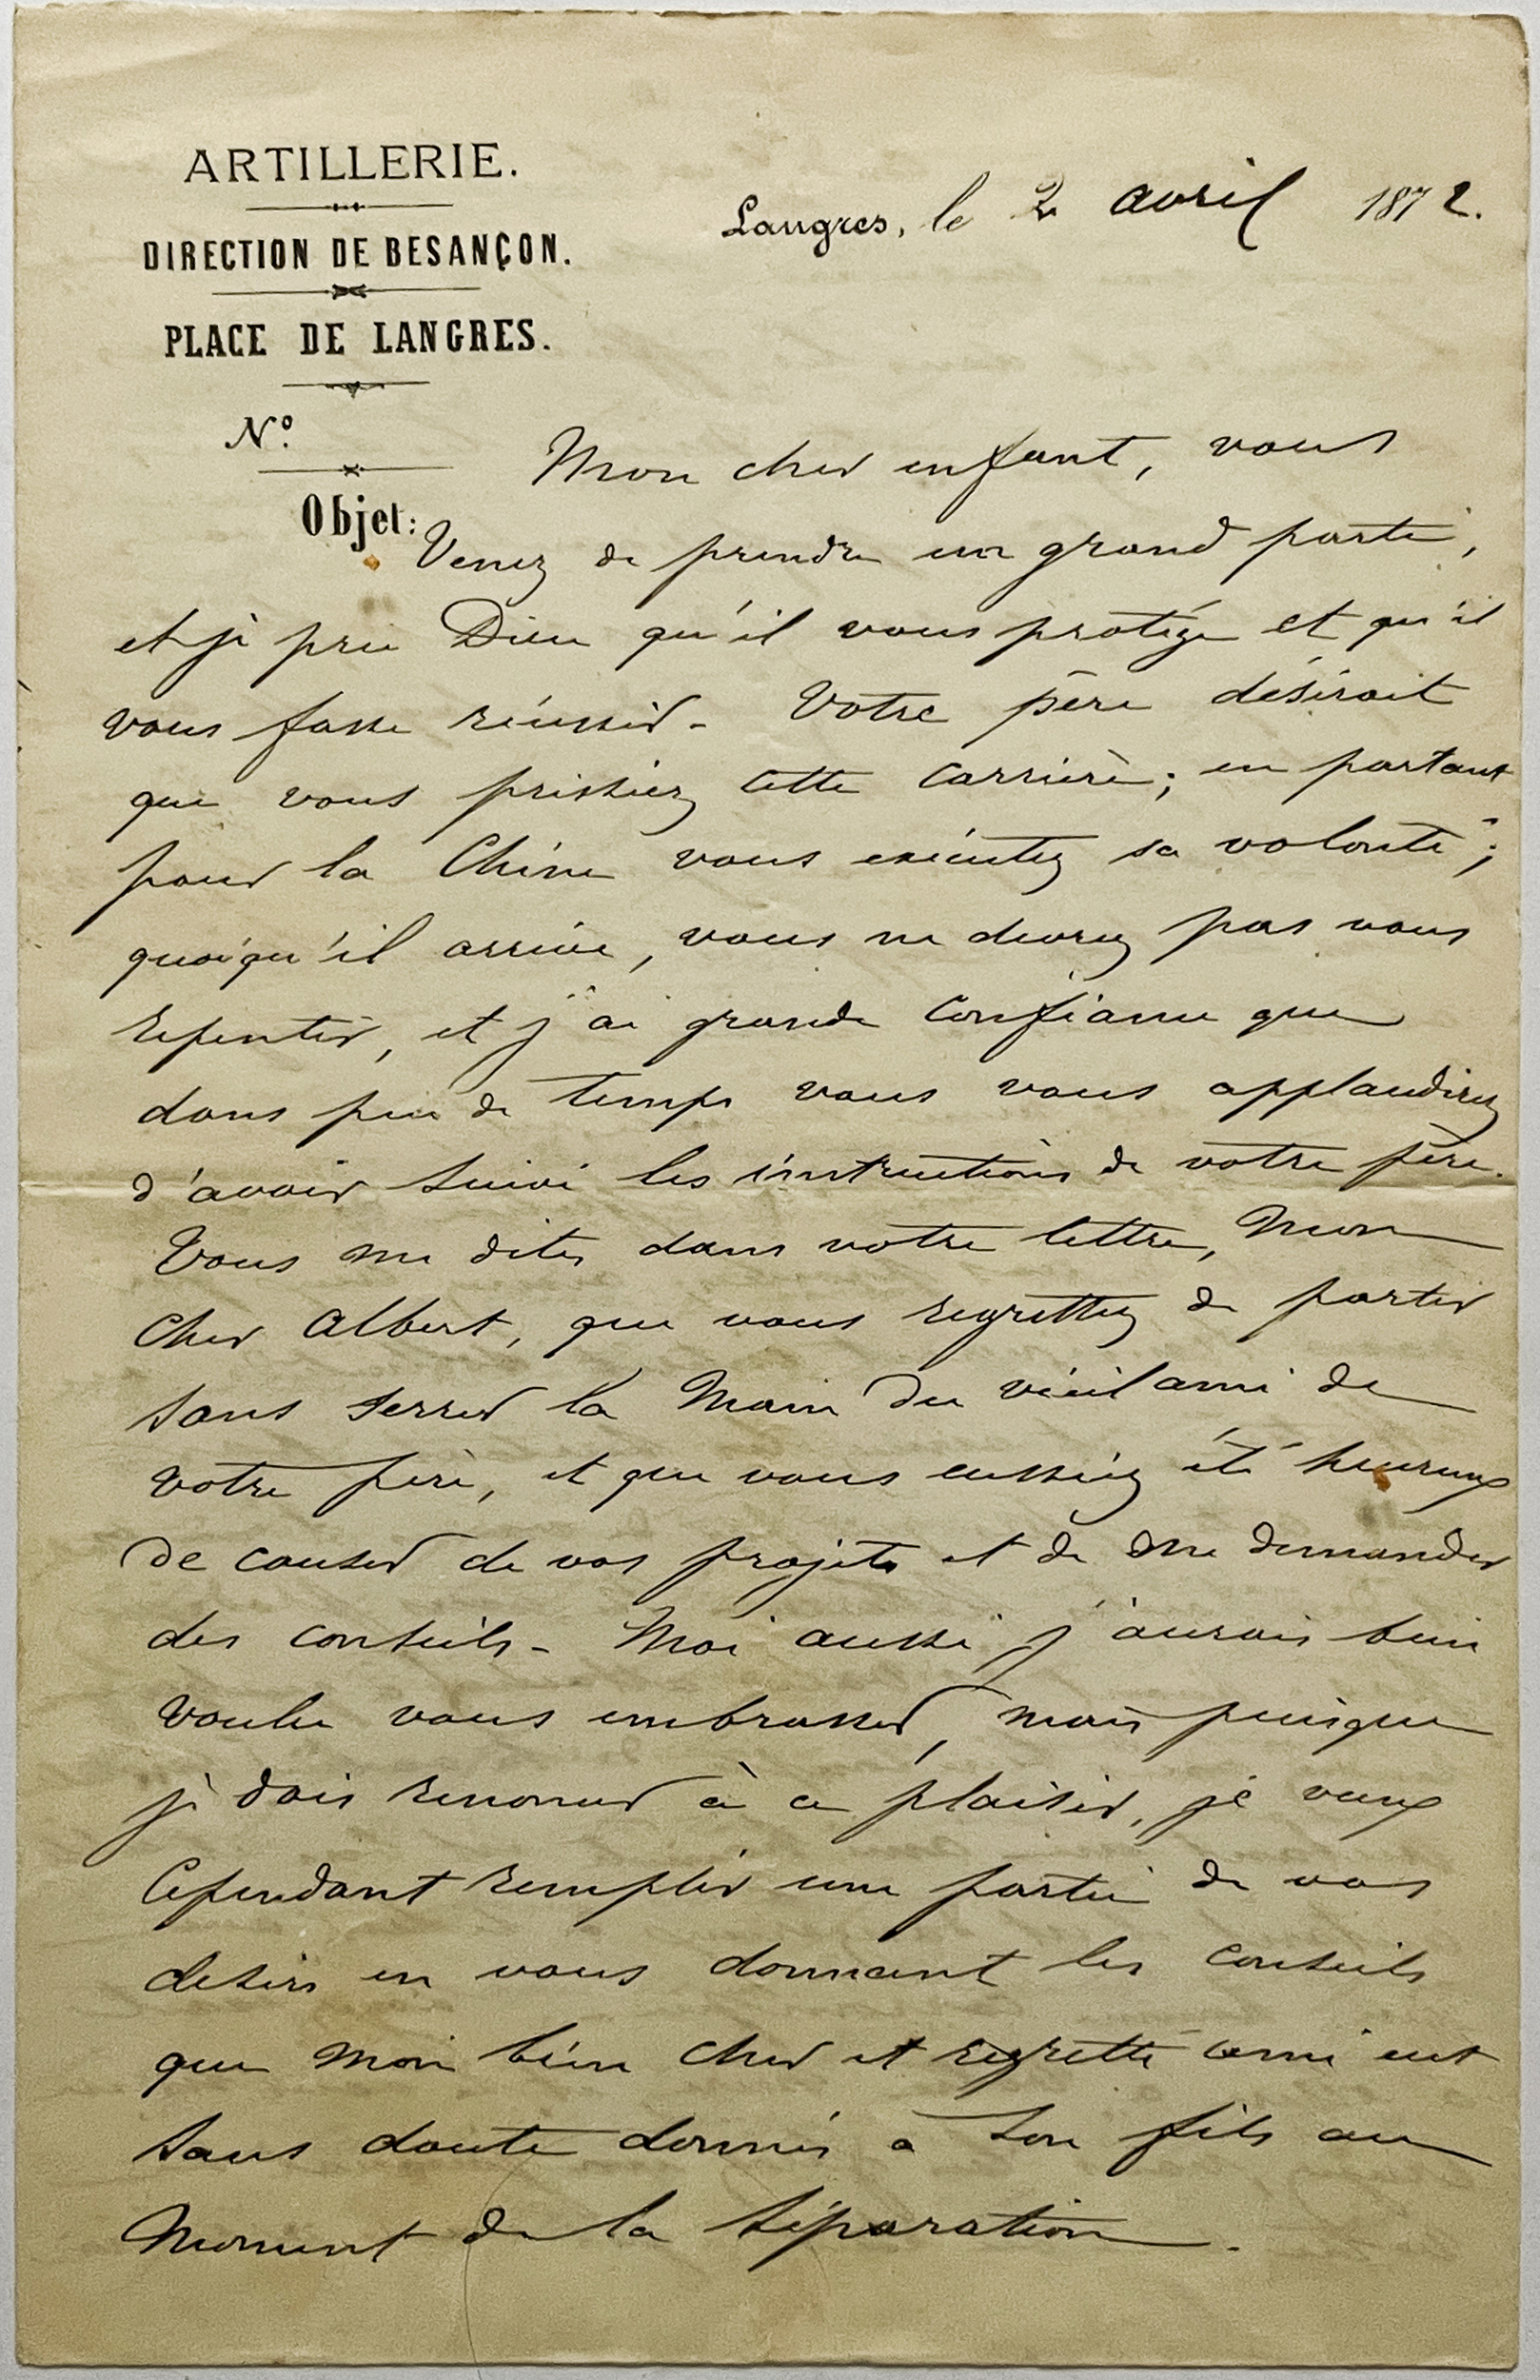 ARTILLERIE.
DIRECTION DE BESANÇON.
PLACE DE LANGRES.
N°.
Objet:
Langres, le 2 avril 1872.
Mon cher enfant, vous
Venez de prendre un grand parti,
et je prie Dieu qu'il vous protège et qu'il
vous fasse réussir - Votre père désirait
que vous prissiez cette carrière; en partant
pour la Chine vous exécutez sa volonté;
quoiqu'il arrive, vous ne devrez pas vous
repentir, et j'ai grande confiance que
dans peu de temps vous vous applaudirez
d'avoir suivi les instructions de votre père.
Vous me dites dans votre lettre, mon
cher Albert, que vous regrettez de partir
sans serrer la main du vieil ami de
votre père, et que vous eussiez été heureux
de causer de vos projets et de me demander
des conseils - Moi aussi j'aurais bien
voulu vous embrasser, mais puisque
je dois renoncer à ce plaisir, je veux
Cependant remplir une partie de vos
desirs en vous donnant les conseils
que mon bien cher et regretté ami eut
sans doute donnés à son fils au
Moment de la séparation.